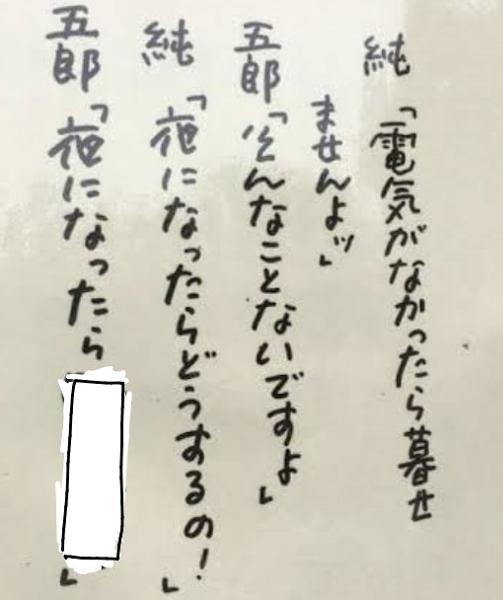 純「電気がなかったら暮せ
ませんよッ」
五郎「そんなことないですよ」
純「夜になったらどうするの!」
五郎「夜になったら 」